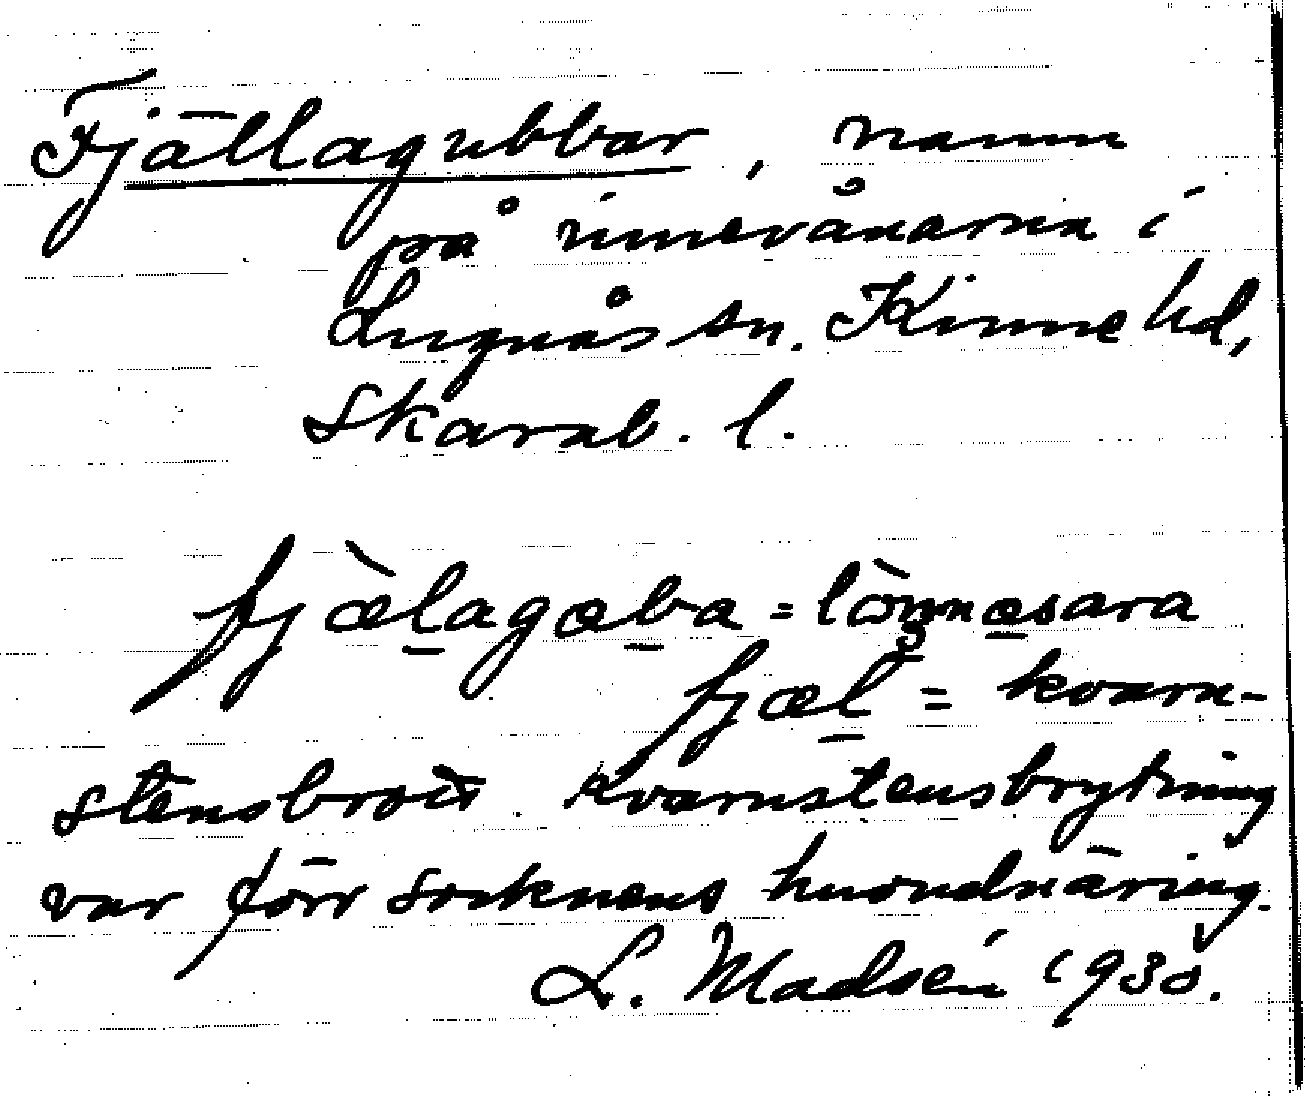 Fjällagubbar, namn
på innevånarna i
Lugnås sn. Kinne hd,
Skarab. l.
fjælagəba = lonnəsara
fjæl = kvarn-
stensbrott. Kvarnstensbrytning
var förr socknens huvudnäring.
L. Madsén 1930.